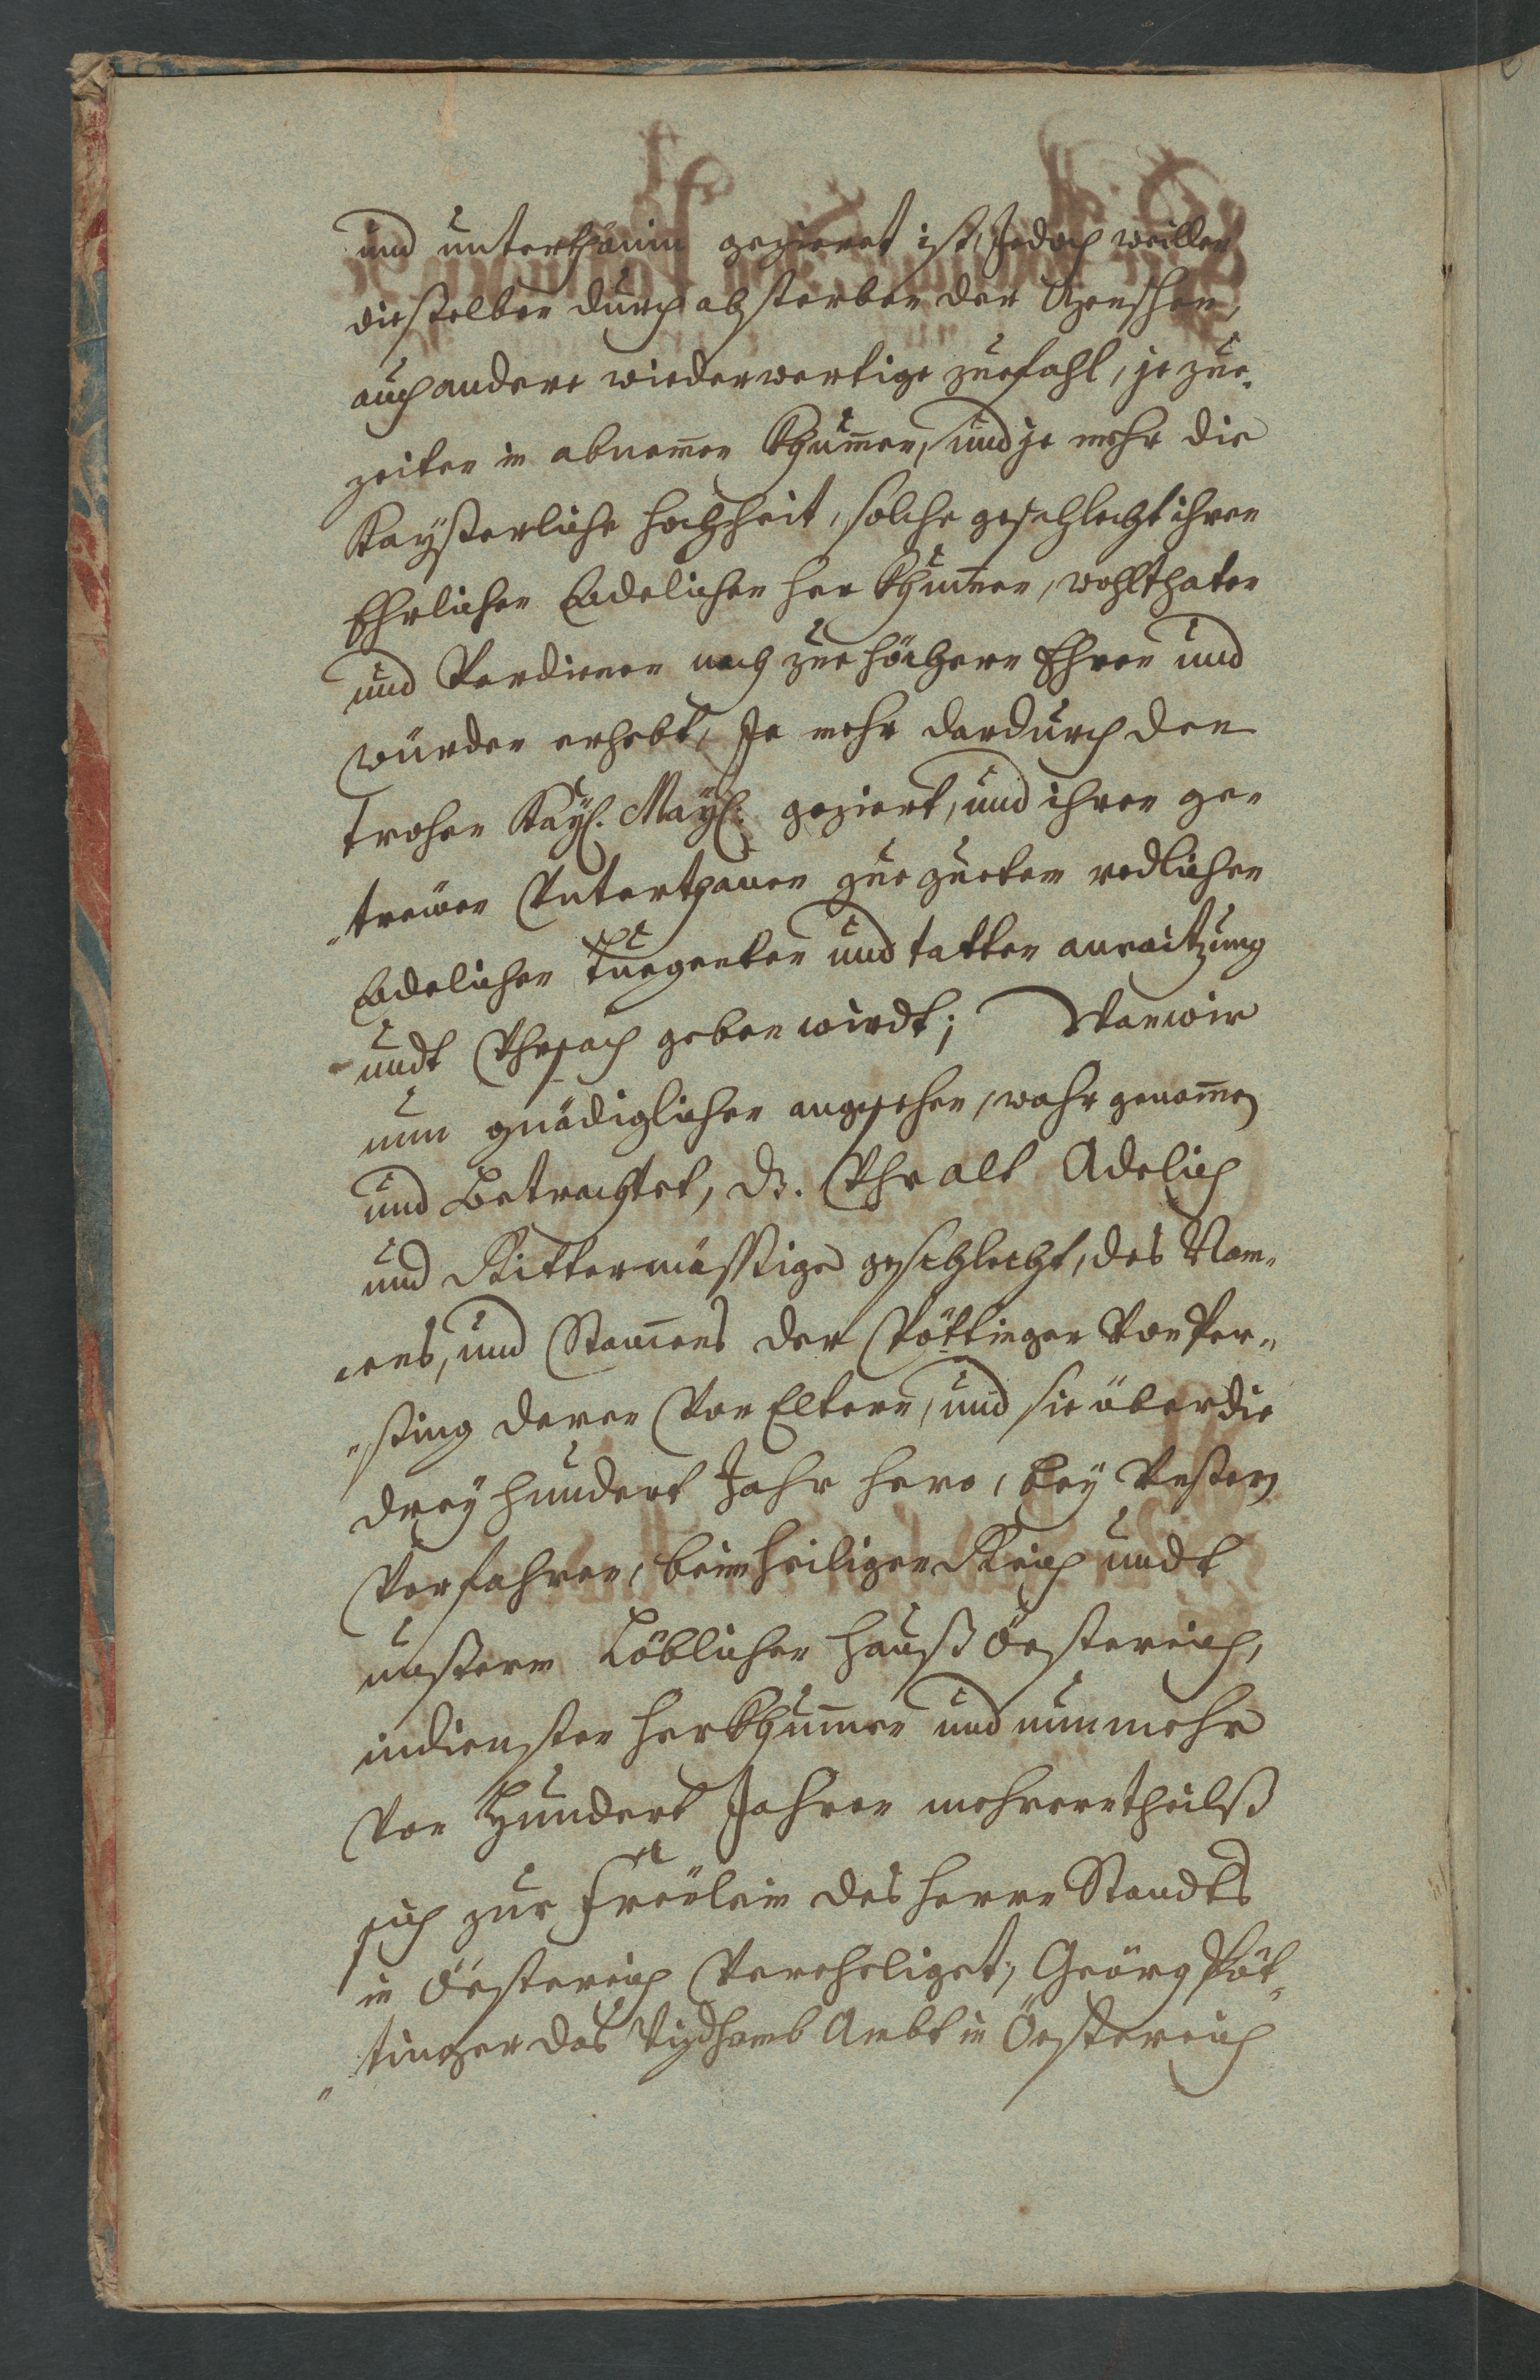 und unterthänin gezieret ist, Jedoch weillen
diesselben durch absterben der Menschen,
auch andere wiederwertige zuefahl, je zue„
zeiten in abnemen Khumen, und je mehr die
Kaysserliche hochheit, solche geschlecht ihren
Ehrlichen Eadelichen her Khumen, wohlthaten
und Verdienen nach zue höchern Ehren und
würden erhebt, Je mehr dardurch den
trohen Kay: May: geziert, und ihren ge„
„trewen Unterthanen zue gueten redlichen
Eadelichen Tuegenten und tatten anraitzung
undt Uhrsach geben wirdt; Wan wir
nun gnädiglichen angesehen, wahrgenomen
und Betrachtet, dz. Uhralt Adelich
und Rittermässtige geschlecht, des Nam„
„ens, und Stamens der Pöttinger Von Per„
„sting deren Vor Eltern, und sie über die
drey hundert Jahr hero, bey Unssern
Vorfahren, beim heiligen Reich undt
unsserm Löblichen hauss Össtereich,
in diensten herkhumen und nun mehr
Von Hundert Jahren mehrerntheilss
sich zur Freülein des herrn Standts
in Össtereich Verehliget, Geörg Pöt„
„tinger das Vizdhomb Ambt in Össtereich